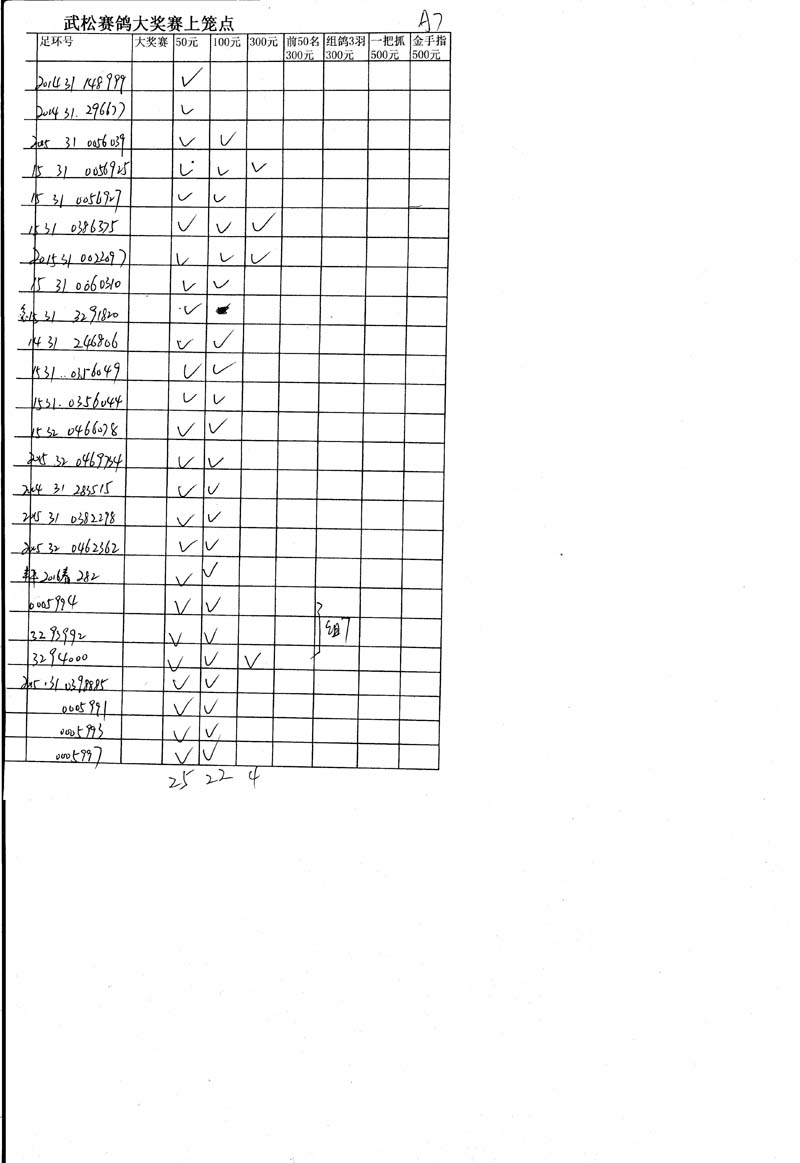 武松赛鸽大奖赛上笼点 A7
足环号 大奖赛 50元 100元 300元 前50名300元 组鸽3羽300元 一把抓500元 金手指500元
2014 31 148999 ✓
2014 31. 296677 ✓
2015 31 0056039 ✓ ✓
15 31 0056925 ✓ ✓ ✓
15 31 0056927 ✓ ✓
15 31 0386375 ✓ ✓ ✓
2015 31 0022097 ✓ ✓ ✓
15 31 0060310 ✓ ✓
15 31 3291820 ✓
14 31 246806 ✓ ✓
15 31 .. 0356049 ✓ ✓
15 31. 0356044 ✓ ✓
15 32 0466078 ✓ ✓
2015 32 0469734 ✓ ✓
2014 31 283515 ✓ ✓
2015 31 0382298 ✓ ✓
2015 32 0462362 ✓ ✓
2016春 282 ✓ ✓
0005994 ✓ ✓
3293992 ✓ ✓ 组7
3294000 ✓ ✓ ✓
2015.31 0398885 ✓ ✓
0005991 ✓ ✓
0005993 ✓ ✓
0005997 ✓ ✓
25 22 4